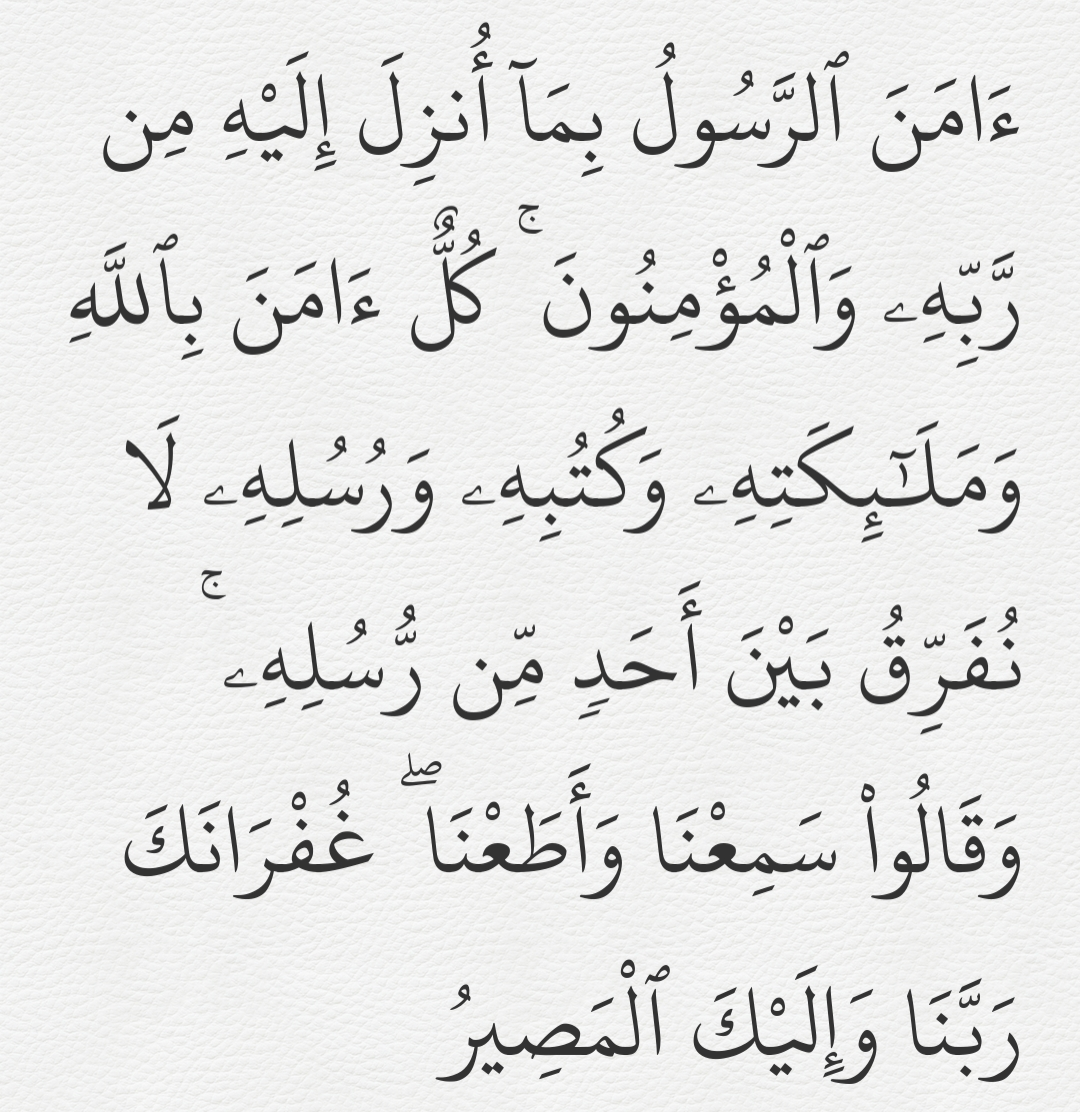 ءَامَنَ ٱلرَّسُولُ بِمَآ أُنزِلَ إِلَيْهِ مِن
رَّبِّهِۦ وَٱلْمُؤْمِنُونَ ۚ كُلٌّ ءَامَنَ بِٱللَّهِ
وَمَلَـٰٓئِكَتِهِۦ وَكُتُبِهِۦ وَرُسُلِهِۦ لَا
نُفَرِّقُ بَيْنَ أَحَدٍ مِّن رُّسُلِهِۦ ۚ
وَقَالُوا۟ سَمِعْنَا وَأَطَعْنَا ۖ غُفْرَانَكَ
رَبَّنَا وَإِلَيْكَ ٱلْمَصِيرُ